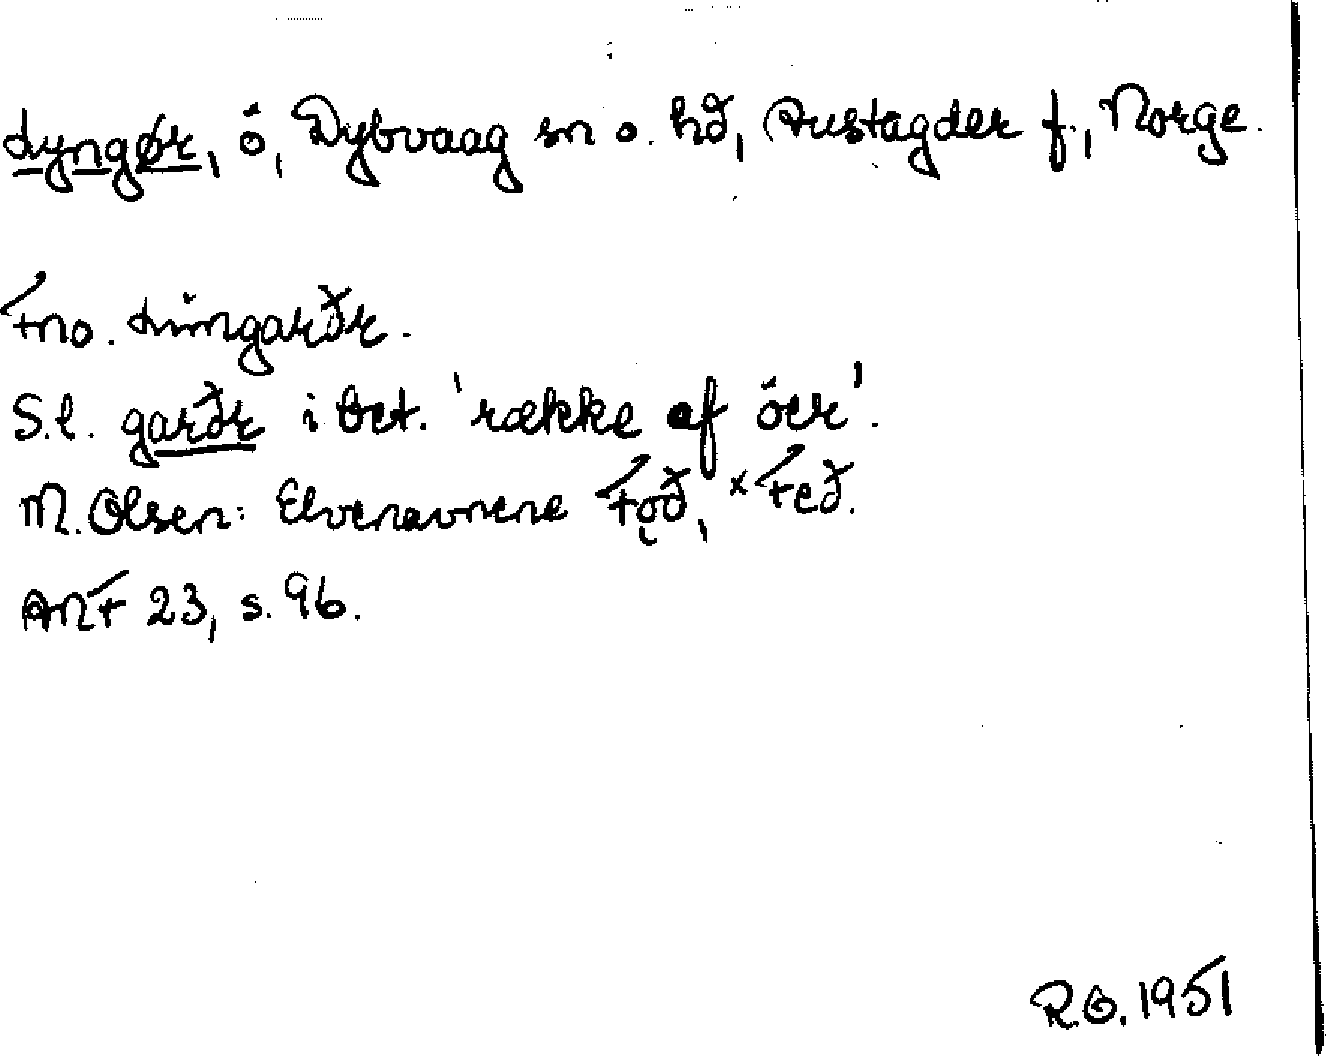 Lyngør, ö, Dybvaag sn o. hd, Austagder f., Norge.
Fno. Limgarðr.
S.l. garðr i bet. 'række af öer'.
M. Olsen: Elvenavnene Fǫð, ×Feð.
ANF 23, s. 96.
R.O. 1951